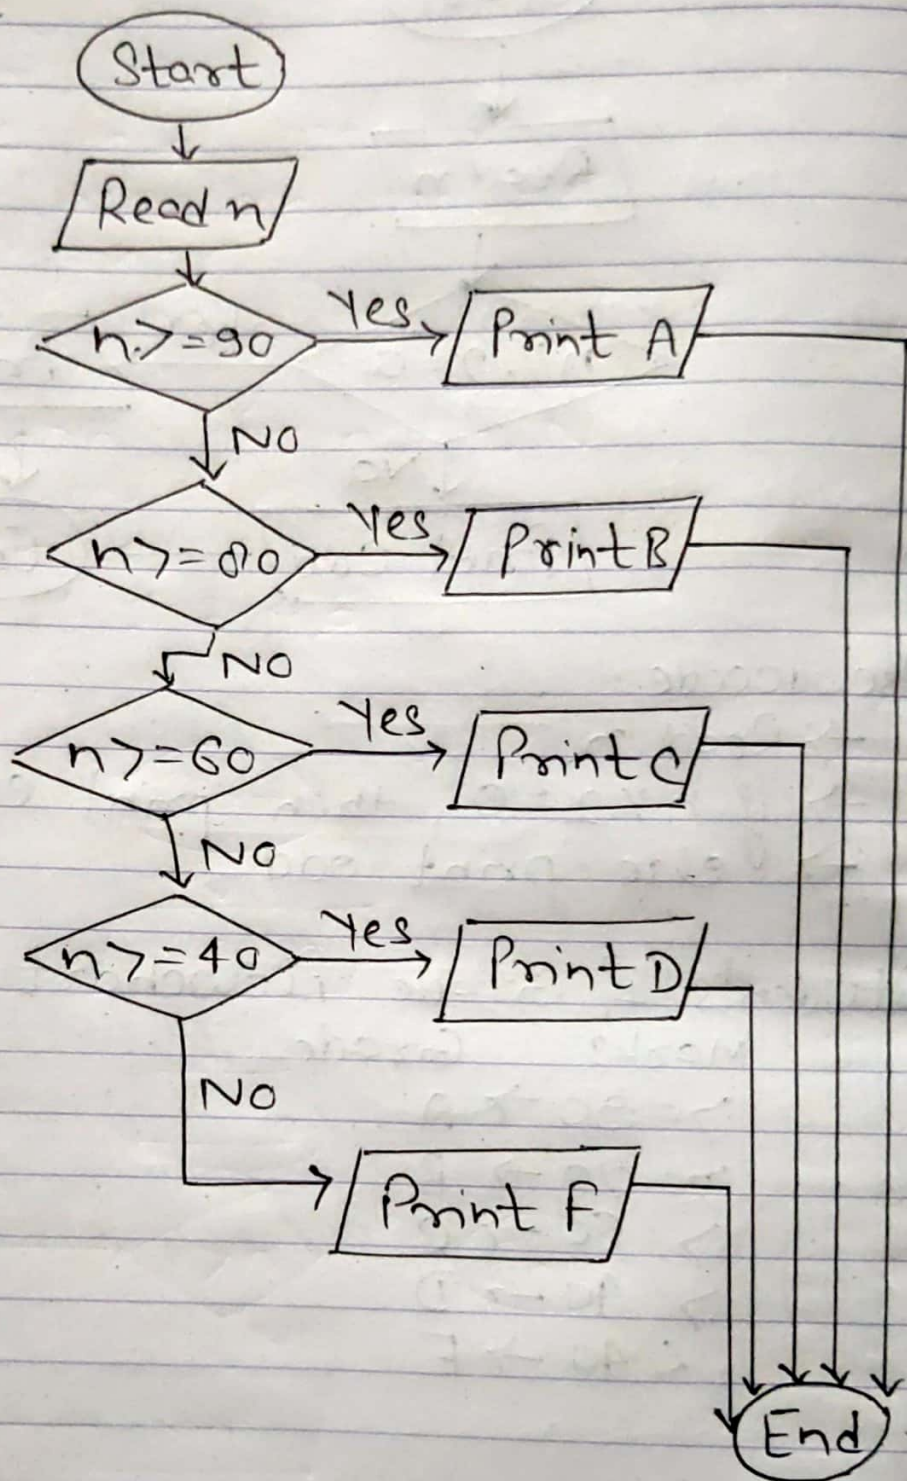 Start
Read n
n>=90
Yes
Print A
NO
n>=80
Yes
Print B
NO
n>=60
Yes
Print C
NO
n>=40
Yes
Print D
NO
Print F
End